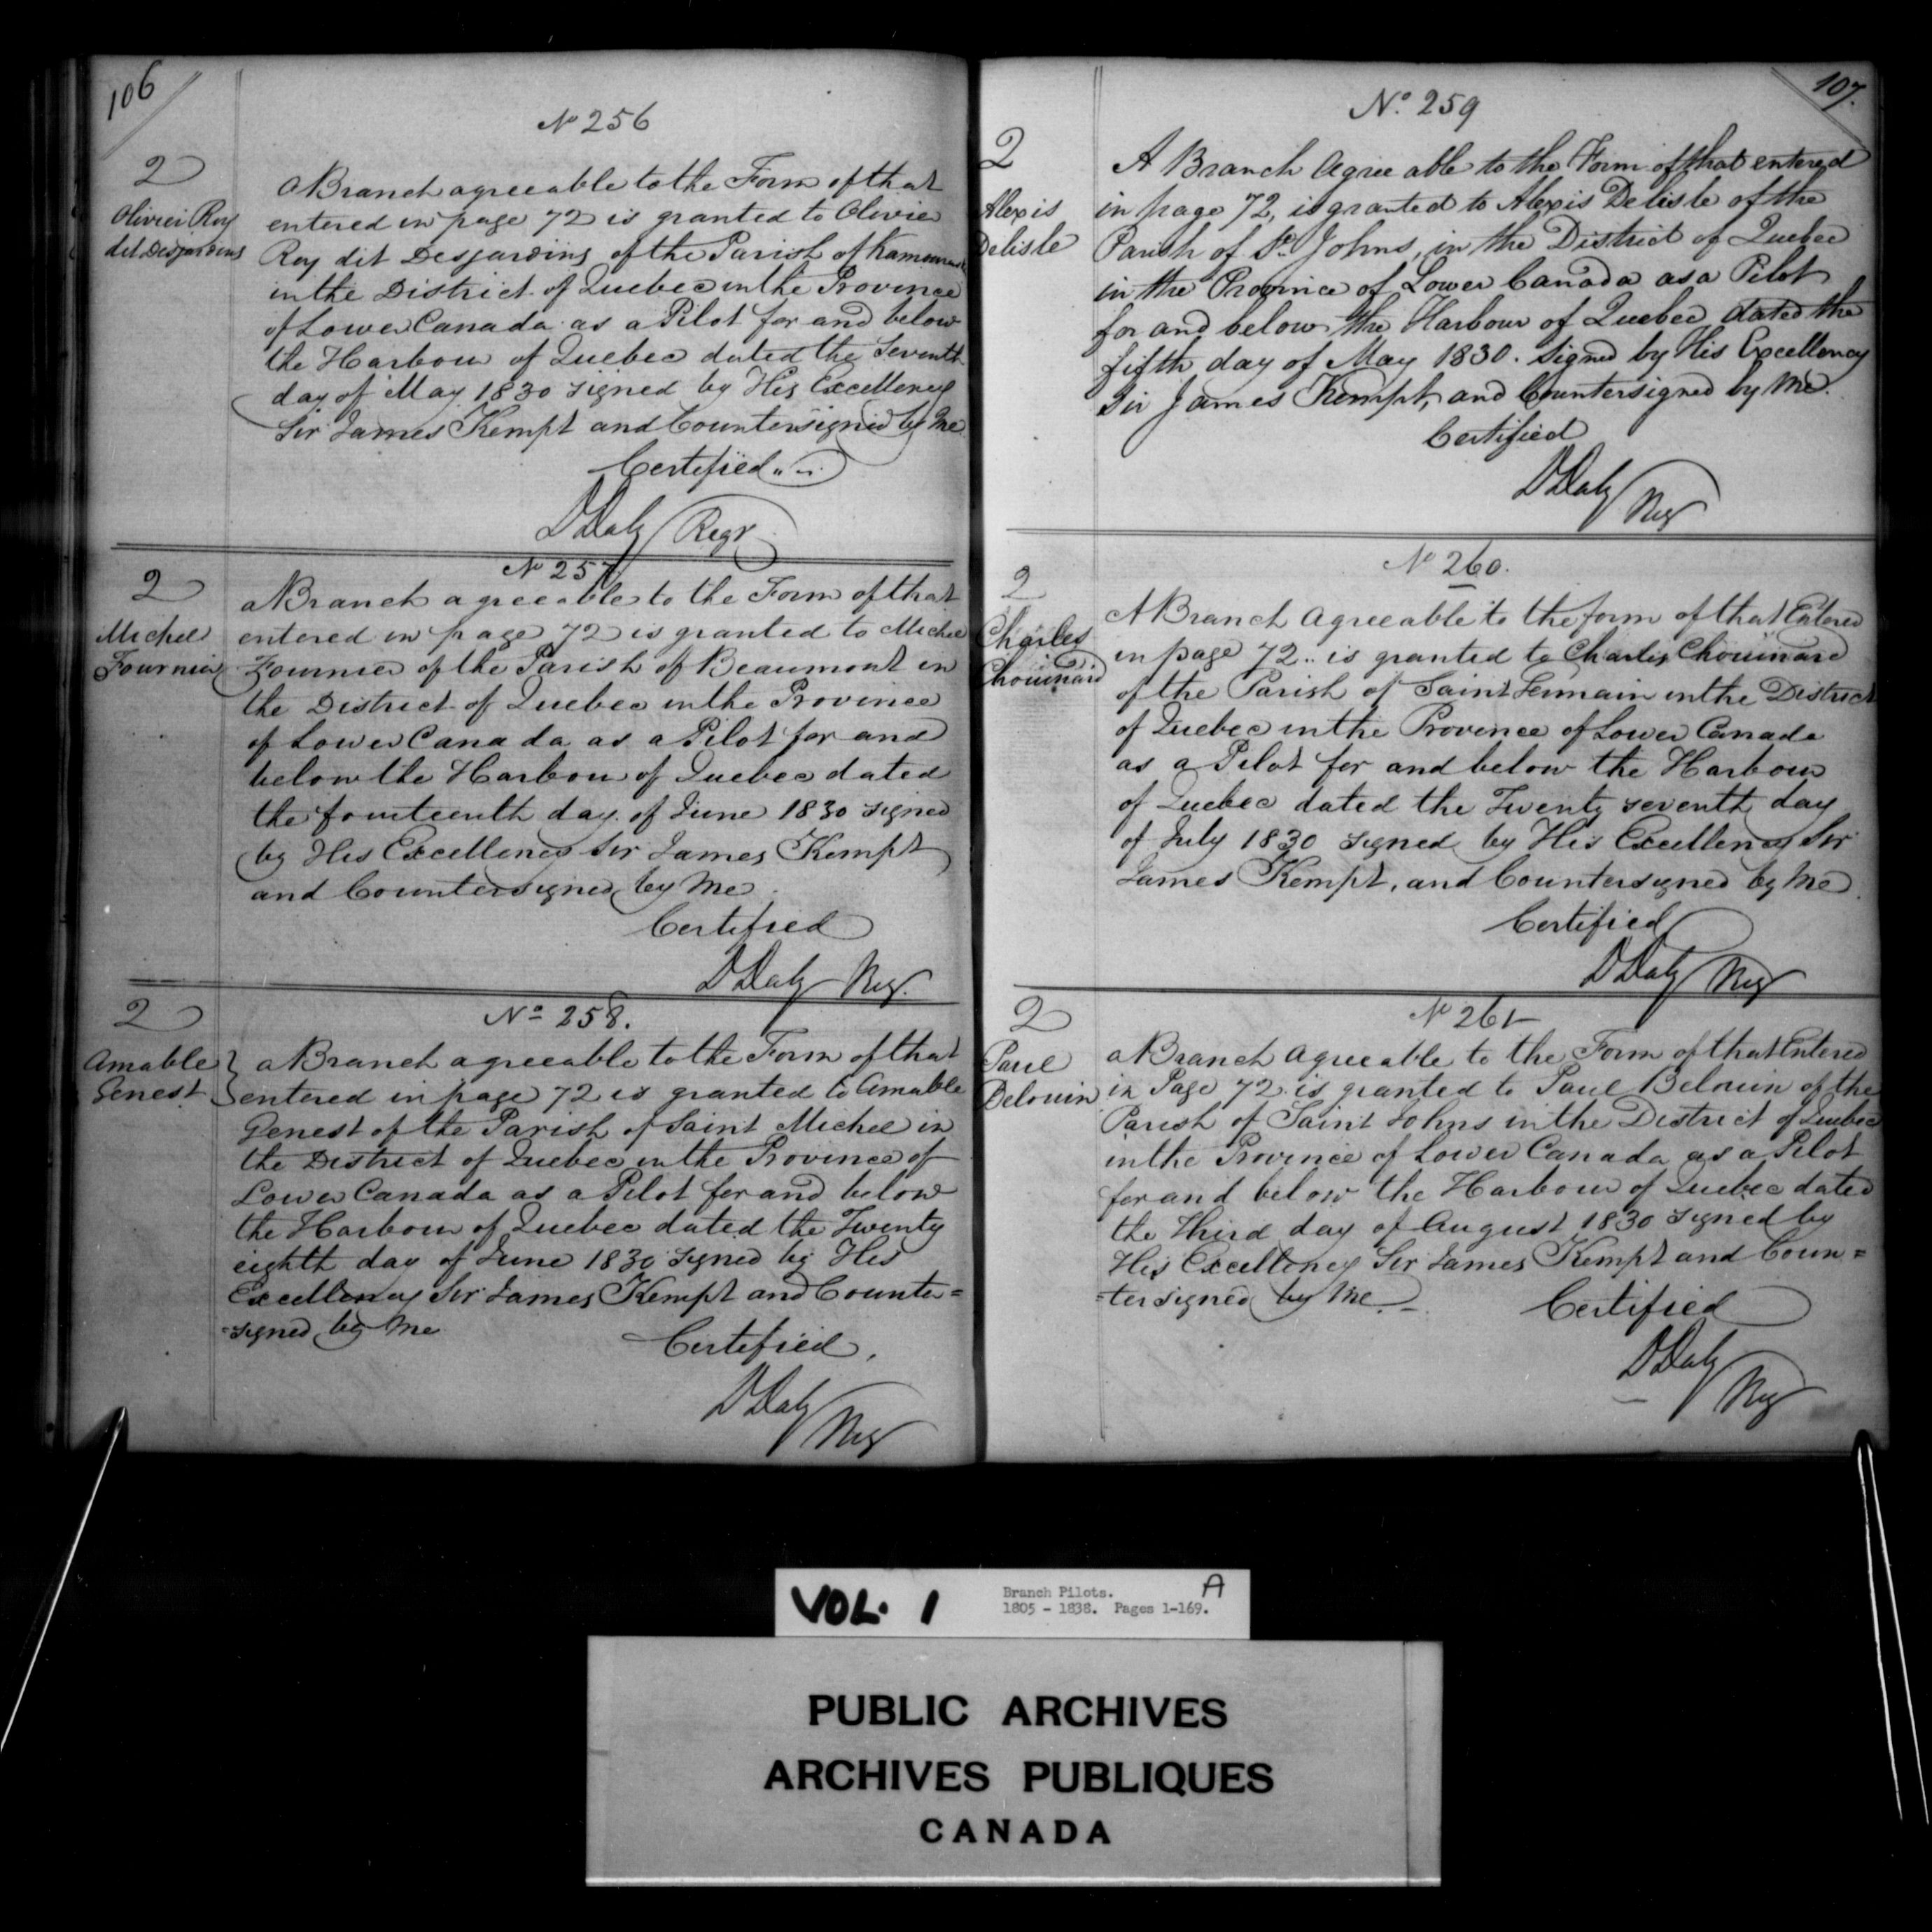 106
No 256
2
Olivier Roy
dit Desjardins
a Branch agreeable to the Form of that
entered in page 72 is granted to Olivier
Roy dit Desjardins of the Parish of
in the District of Quebec in the Province
of Lower Canada as a Pilot for and below
the Harbour of Quebec dated the Seventh
day of May 1830 signed by His Excellency
Sir James Kempt and Countersigned by Me
Certified
DDaly Regr
No 257
2
Michel
Fournier
a Branch agreeable to the Form of that
entered in page 72 is granted to Michel
Fournier of the Parish of Beaumont in
the District of Quebec in the Province
of Lower Canada as a Pilot for and
below the Harbour of Quebec dated
the fourteenth day of June 1830 signed
by His Excellency Sir James Kempt
and Countersigned by Me
Certified
DDaly Reg.
No 258.
2
Amable
Genest
a Branch agreeable to the Form of that
entered in page 72 is granted to Amable
Genest of the Parish of Saint Michel in
the District of Quebec in the Province of
Lower Canada as a Pilot for and below
the Harbour of Quebec dated the Twenty
eighth day of June 1830 signed by His
Excellency Sir James Kempt and Counter=
=signed by Me
Certified,
DDaly Reg
107.
No. 259
2
Alexis
Delisle
A Branch Agree able to the Form of that entered
in page 72, is granted to Alexis Delisle of the
Parish of St. Johns, in the District of Quebec
in the Province of Lower Canada as a Pilot
for and below the Harbour of Quebec dated the
fifth day of May 1830. Signed by His Excellency
Sir James Kempt, and Countersigned by Me.
Certified
DDaly Reg
No 260.
2
Charles
Chouinard
A Branch Agreeable to the form of that Entered
in page 72 is granted to Charles Chouinard
of the Parish of Saint Germain in the District
of Quebec in the Province of Lower Canada
as a Pilot for and below the Harbour
of Quebec dated the Twenty seventh day
of July 1830 signed by His Excellency Sir
James Kempt, and Countersigned by Me
Certified
DDaly Reg
No 261
2
Paul
Belouin
a Branch Agreeable to the Form of that Entered
in Page 72 is granted to Paul Belouin of the
Parish of Saint Johns in the District of Quebec
in the Province of Lower Canada as a Pilot
for and below the Harbour of Quebec dated
the Third day of August 1830 signed by
His Excellency Sir James Kempt and Coun=
=tersigned by Me.
Certified
DDaly
Reg
VOL. 1
Branch Pilots. A
1805 - 1838. Pages 1-169.
PUBLIC ARCHIVES
ARCHIVES PUBLIQUES
CANADA